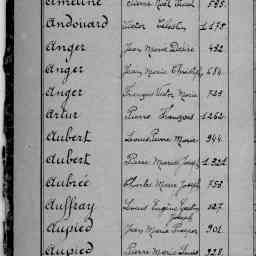 Ameline Pierre Noël 595.
Andouard Victor Célestin 1.175
Anger Jean Marie Désiré 492
Anger Jean Marie 684.
Anger François Victor Marie 723
Artur Pierre François 1.262
Aubert Louis Pierre Marie 944.
Aubert Pierre Marie Joseph 1.321
Aubrée Charles Marie Joseph 753
Auffray Louis Eugène 127
Joseph
Aupied Jean Marie 901.
Aupied Pierre Marie Louis 928